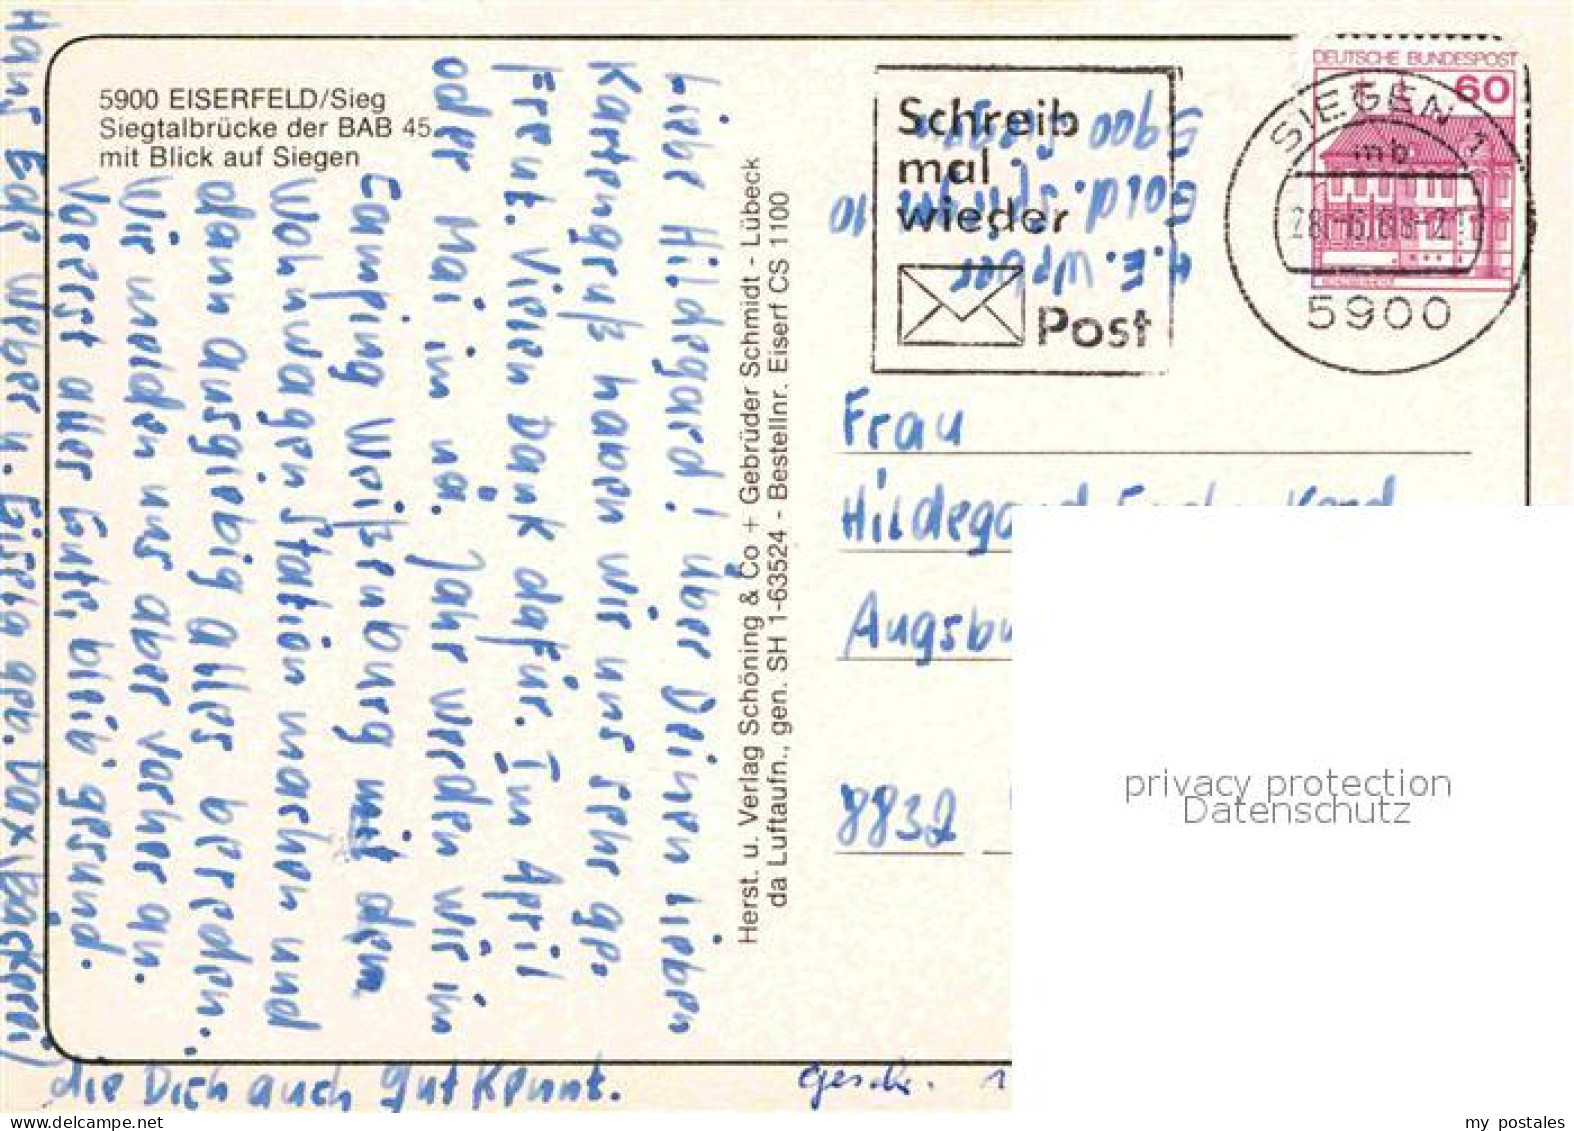 5900 EISERFELD/Sieg
Siegtalbrücke der BAB 45
mit Blick auf Siegen
Liebe Hildegard! über Deinen lieben
Kartengruß haben wir uns sehr ge-
freut. Vielen Dank dafür. Im April
oder Mai im nä. Jahr werden wir im
Camping Weißenburg mit dem
Wohnwagen Station machen und
dann ausgiebig alles bereden.
Wir melden uns aber vorher an.
Vorerst alles Gute, bleib' gesund.
Hans, Edg Weber u. Gisela geb. Dax (Bäckerei)
die Dich auch gut kennt.
Herst. u. Verlag Schöning & Co + Gebrüder Schmidt - Lübeck
da Luftaufn., gen. SH 1-63524 - Bestellnr. Eiserf CS 1100
Schreib
mal
wieder
Post
H. E. Weber
Gold. 10
5900 Siegen
DEUTSCHE BUNDESPOST
60
SIEGEN 1
mb
5900
Frau
Augsbu
8832
gesch. 1
privacy protection
Datenschutz
my postales